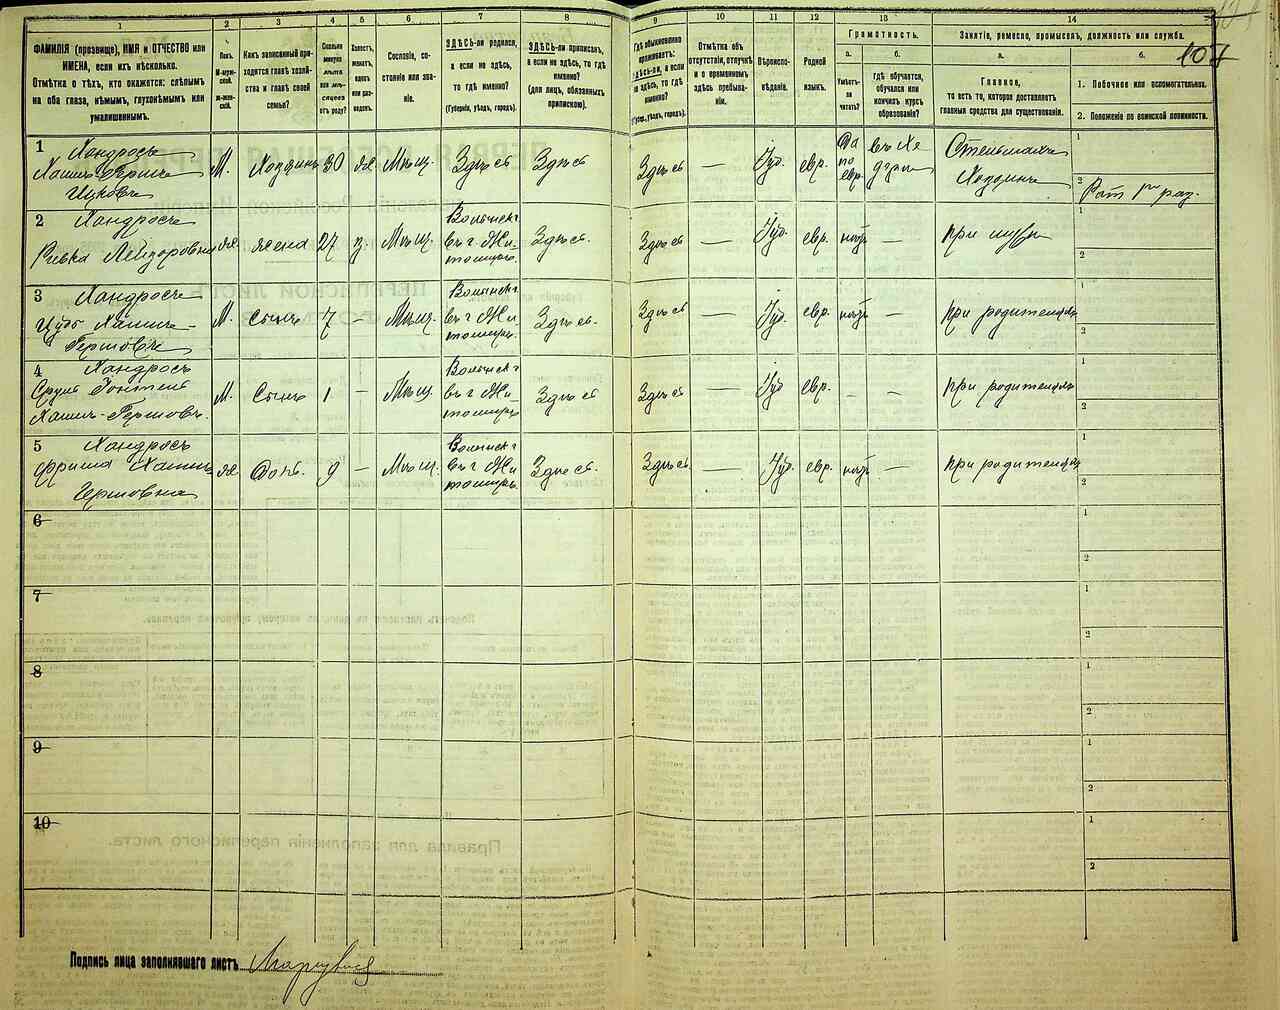 107
1 2 3 4 5 6 7 8 9 10 11 12 13 14
ФАМИЛІЯ (прозвище), ИМЯ и ОТЧЕСТВО или
ИМЕНА, если ихъ нѣсколько.
Отмѣтка о тѣхъ, кто окажется: слѣпымъ
на оба глаза, нѣмымъ, глухонѣмымъ или
умалишеннымъ.
Полъ.
М-муж-
ской.
Ж-жен-
скій.
Какъ записанный при-
ходится главѣ хозяй-
ства и главѣ своей
семьи?
Сколько
минуло
лѣтъ
или мѣ-
сяцевъ
отъ роду?
Холостъ,
женатъ,
вдовъ
или раз-
веденъ.
Сословіе, со-
стояніе или зва-
ніе.
ЗДѢСЬ-ли родился,
а если не здѣсь,
то гдѣ именно?
(Губернія, уѣздъ, городъ).
ЗДѢСЬ-ли приписанъ,
а если не здѣсь, то гдѣ
именно?
(для лицъ, обязанныхъ
припиской).
Гдѣ обыкновенно
проживаетъ:
здѣсь-ли, а если
не здѣсь, то гдѣ
именно?
(Губер., уѣздъ, городъ).
Отмѣтка объ
отсутствіи, отлучкѣ
и о временномъ
здѣсь пребыва-
ніи.
Вѣроиспо-
вѣданіе.
Родной
языкъ.
Грамотность.
а. б.
Умѣетъ-
ли
читать?
Гдѣ обучается,
обучался или
кончилъ курсъ
образованія?
Занятіе, ремесло, промыселъ, должность или служба.
а. б.
Главное,
то есть то, которое доставляетъ
главныя средства для существованія.
1. Побочное или вспомогательное.
2. Положеніе по воинской повинности.
1 Хандросъ
Хаимъ-Герш
Ицковъ
М. Хозяинъ 30 ж Мѣщ. Здѣсь Здѣсь Здѣсь — Іуд. евр. Да по евр. въ Хедерѣ
Хозяинъ
Рат. 1го раз.
2 Хандросъ
Ривка Лейзоровна
ж жена 27 з. Мѣщ. Волынск. въ г Житомирѣ Здѣсь. Здѣсь — Іуд. евр. нѣтъ — при мужѣ
3 Хандросъ
Хаимъ-
Гершовъ
М. Сынъ 7 — Мѣщ. Волынск. въ г Житомирѣ Здѣсь. Здѣсь — Іуд. евр. нѣтъ — при родителяхъ
4 Хандросъ
Сруль
Хаимъ-Гершовъ.
М. Сынъ 1 — Мѣщ. Волынск. въ г Житомирѣ Здѣсь Здѣсь — Іуд. евр. — — при родителяхъ
5 Хандросъ
Хаимъ
Гершовна
ж. Дочь. 9 — Мѣщ. Волынск. въ г Житомирѣ Здѣсь. Здѣсь — Іуд. евр. нѣтъ — при родителяхъ
6
7
8
9
10
Подпись лица заполнявшаго листъ